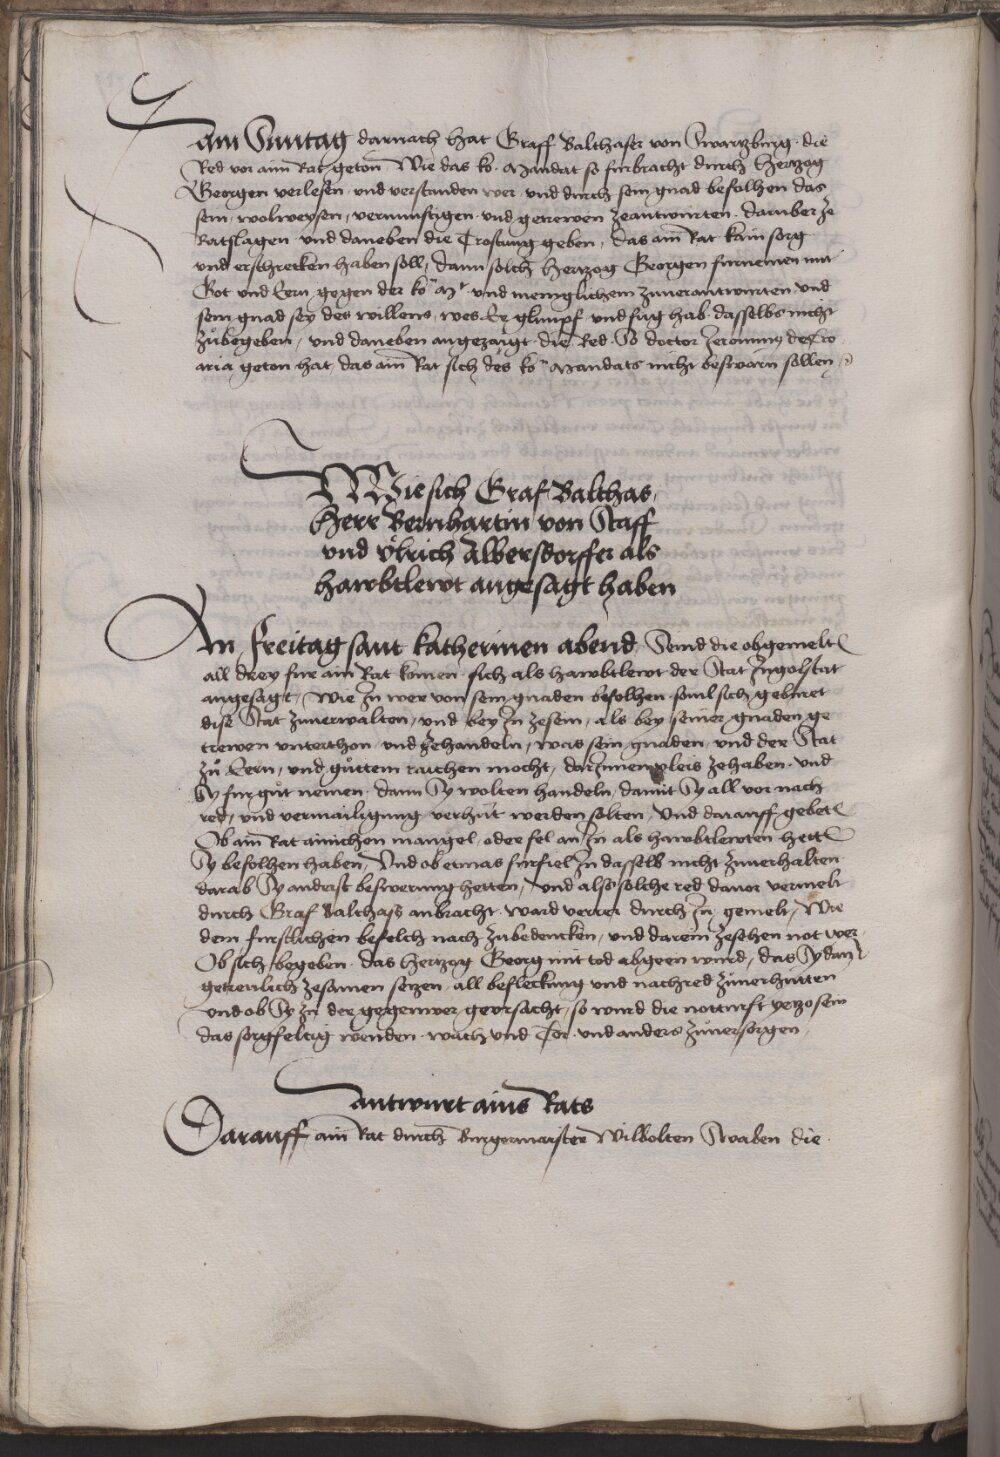 Am Sunntag darnach hat Graff Balthaser von Swartzburg die
Red vor aim Rat geton Wie das ko. Mandat so furbracht durch Hertzog
Georgen verlesen und verstanden wer und durch sein gnad befolhen das
sein wolweysen, vernunftigen und getrewen zeantwurten. daruber ze
Ratslagen und daneben die Trostung geben, das ain Rat kain sorg
und erschrecken haben soll, dann solch Hertzog Georgen furnemen mit
Got und Eern gegen der ko. Mt. und meniglichem zuuerantwurten und
sein gnad sey des willens, wes Er glimpf und fug hab dasselbs nicht
zůbegeben, und daneben angezaigt die Red So doctor Jeronimus de Cro
aria geton hat, das ain Rat sich des ko. Mandats nicht beswarn sollen
Wie sich Graf Balthas,
Herr Bernhartin von Stauff
und Ulrich Albersdorffer als
hawbtlewt angesagt haben
An freitag sant katherinen abend Seind die obgemelt
all drey fur ain Rat komen sich als hawbtlewt der Stat Ingolstat
angesagt, Wie In wer von sein gnaden befolhen sunl sich geburet
dise Stat zuuerwalten, und bey In zesein, als bey seiner gnaden ge
trewen unterthon und zehandeln, was sein gnaden und der Stat
zů Eern, und gůttem raichen mocht, darInnen vleis zehaben und
Sy fur gůt nemen. dann Sy wolten handeln, damit Sy all vor nach
red, und vermailigung verhůt werden solten, Und darauff gebet
Ob ain Rat ainichen mangel, oder fel an In als hawbtlewten hett
Sy befolhen haben, Und ob etwas furfiel In dasselb nicht zuuerhalten
darab Sy anderst beswerung hetten, Und also solche red dauor vermelt
durch Graf Balthass anbracht. ward verrer durch In gemelt, Wie
dem furstlichen befelch nach zubedencken, und darein zesehen not wer
Ob sich begeben. das Hertzog Georg mit tod abgeen wurd, das Sy dan
getreulich zesamen setzen, all befleckung und nachred zůuerhutten
und ob Sy In der gegenwer geursacht, so wurd die notturft yetzo sein
das sorgfeltig wenden. wach und Tor und anders zůuersorgen
Antwurt ains Rats
Darauff ain Rat durch Burgermaister Wilbolten Swaben die